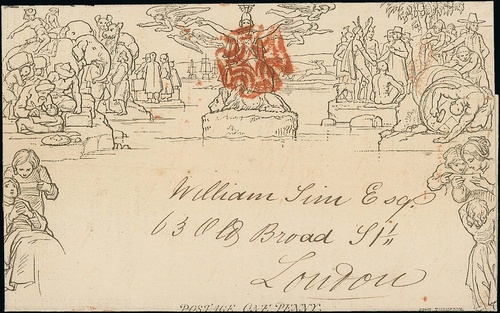 William Sim Esq.
63 Old Broad St.
London
POSTAGE ONE PENNY.